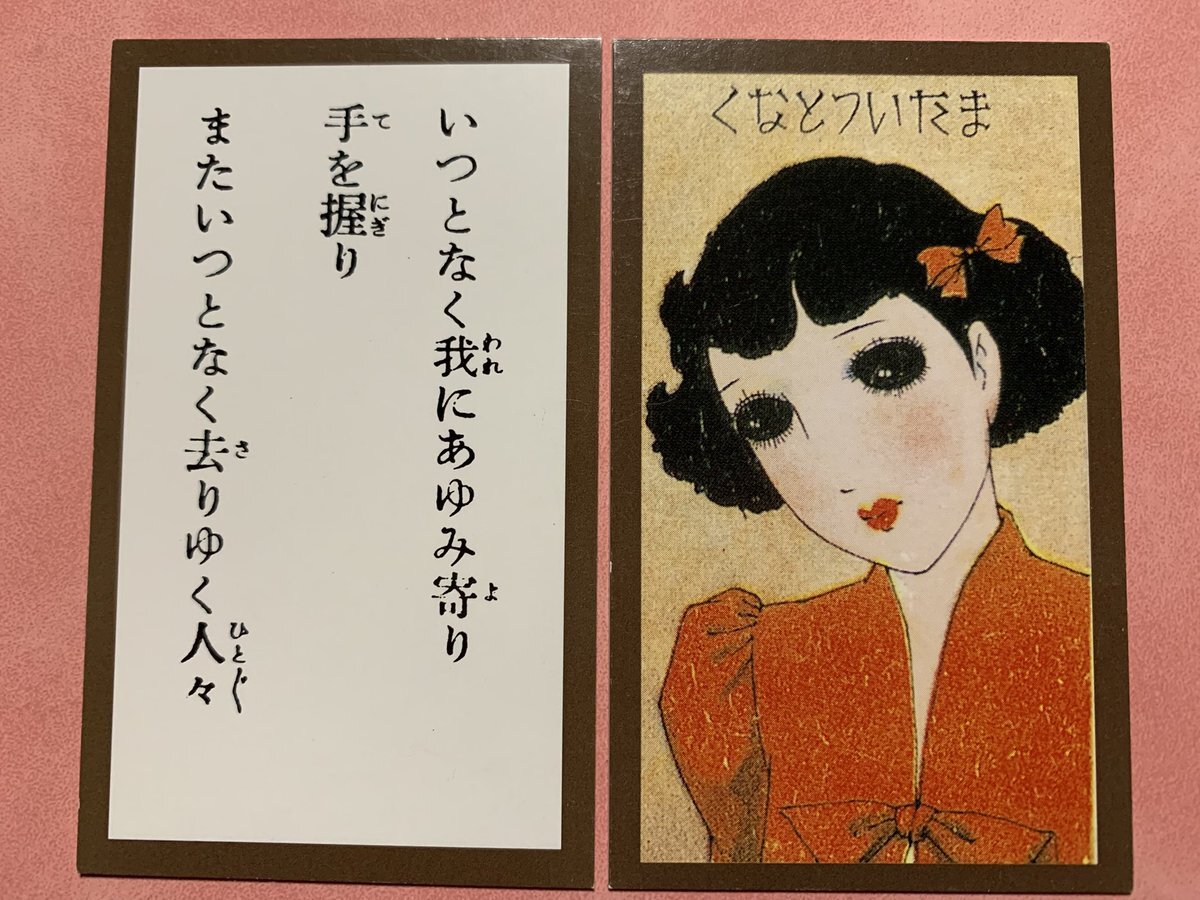 いつとなく我にあゆみ寄り
われ
よ
手を握り
て
にぎ
またいつとなく去りゆく人々
さ
ひとびと
またいつとなく